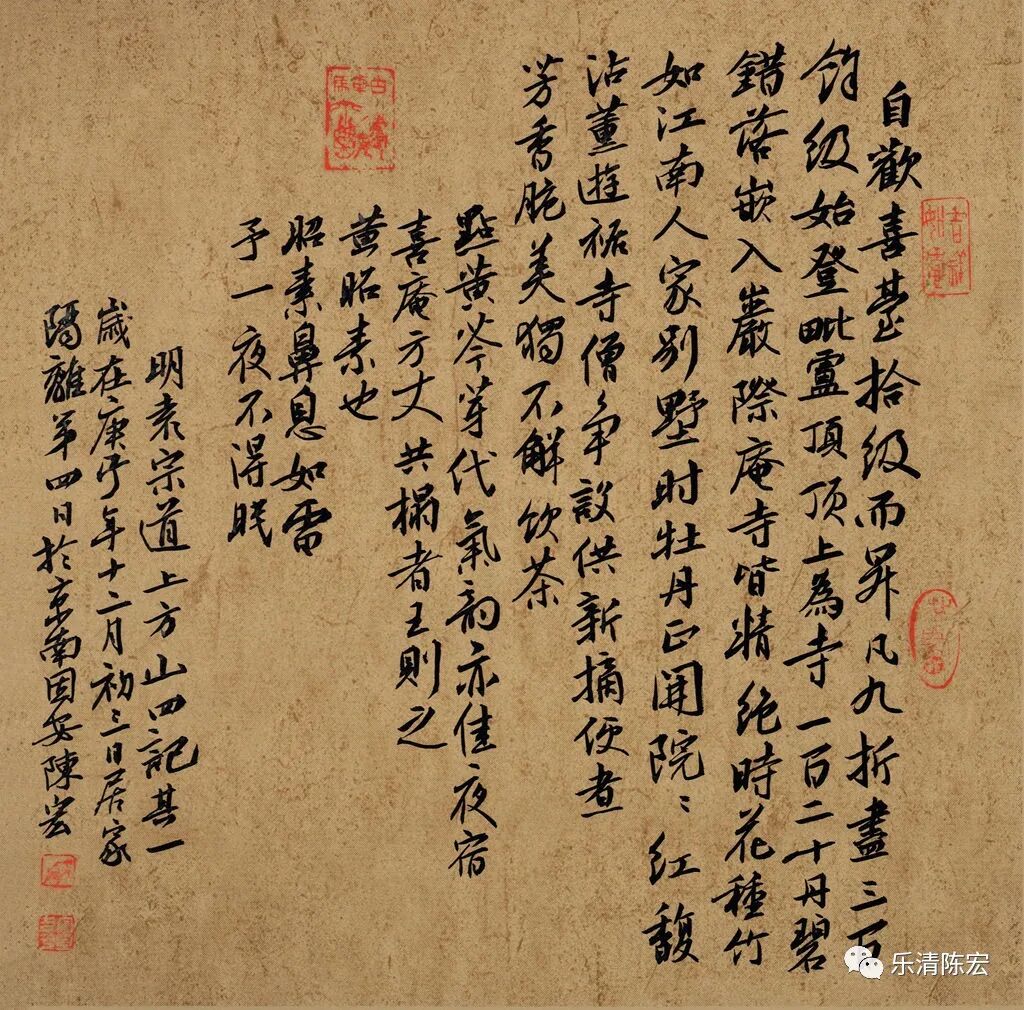 自歡喜臺拾級而昇凡九折盡三百
餘級始登毗盧頂頂上為寺一百二十丹碧
錯落嵌入巖際庵寺皆精絕時花種竹
如江南人家別墅时牡丹正開院〻红馥
沾薰遊裾寺僧争設供新摘便煮
芳香脆美獨不解飲茶
點黄芩芽代氣韵亦佳夜宿
喜庵方丈共榻者王則之
黄昭素也
昭素鼻息如雷
予一夜不得眠
明袁宗道上方山四記其一
歲在庚子年十二月初三日居家
隔離第四日於京南固安陳宏
乐清陈宏